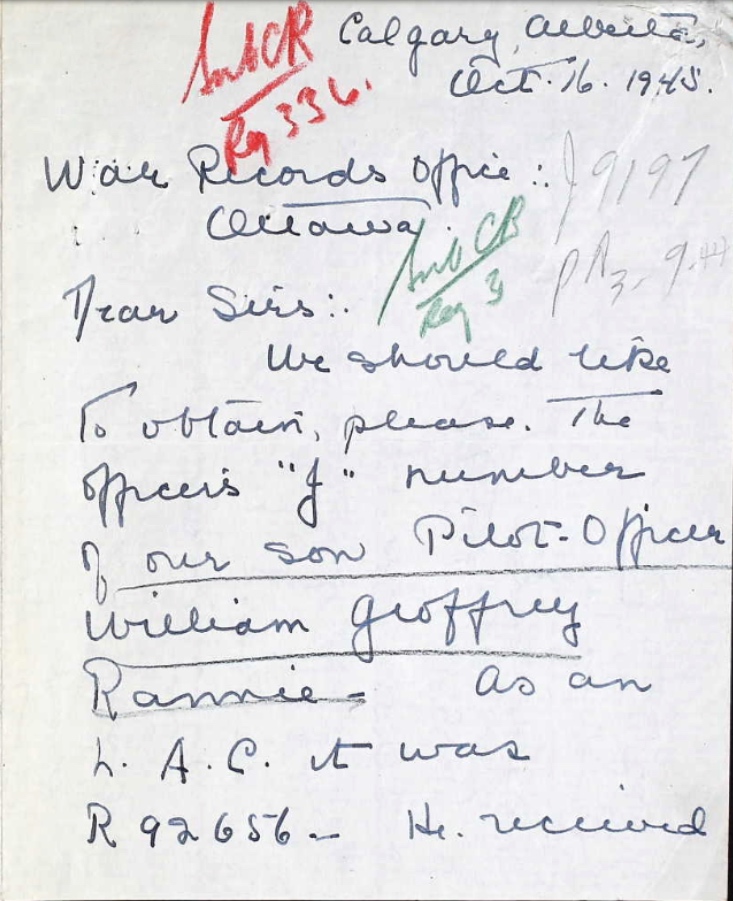 Calgary, Alberta,
Oct. 16. 1945.
Sub CR
Reg 336.
War Records Office:
J9197
Ottawa.
Sub CR
Reg 3
Dear Sirs:.
We should like
to obtain, please. The
officer's "J" number
of our son Pilot-Officer
William Geoffrey
Rannie- As an
L. A. C. it was
R 92656 - He. received